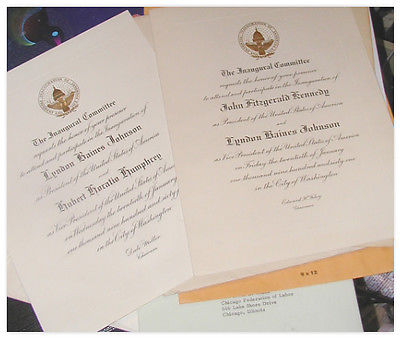 The Inaugural Committee
requests the honor of your presence
to attend and participate in the Inauguration of
Lyndon Baines Johnson
as President of the United States of America
and
Hubert Horatio Humphrey
as Vice President of the United States of America
on Wednesday the twentieth of January
one thousand nine hundred and sixty
in the City of Washington
Chairman
The Inaugural Committee
requests the honor of your presence
to attend and participate in the Inauguration of
John Fitzgerald Kennedy
as President of the United States of America
and
Lyndon Baines Johnson
as Vice President of the United States of America
on Friday the twentieth of January
one thousand nine hundred and sixty one
in the City of Washington
Edward H. Foley
Chairman
9 x 12
Chicago Federation of Labor
666 Lake Shore Drive
Chicago, Illinois